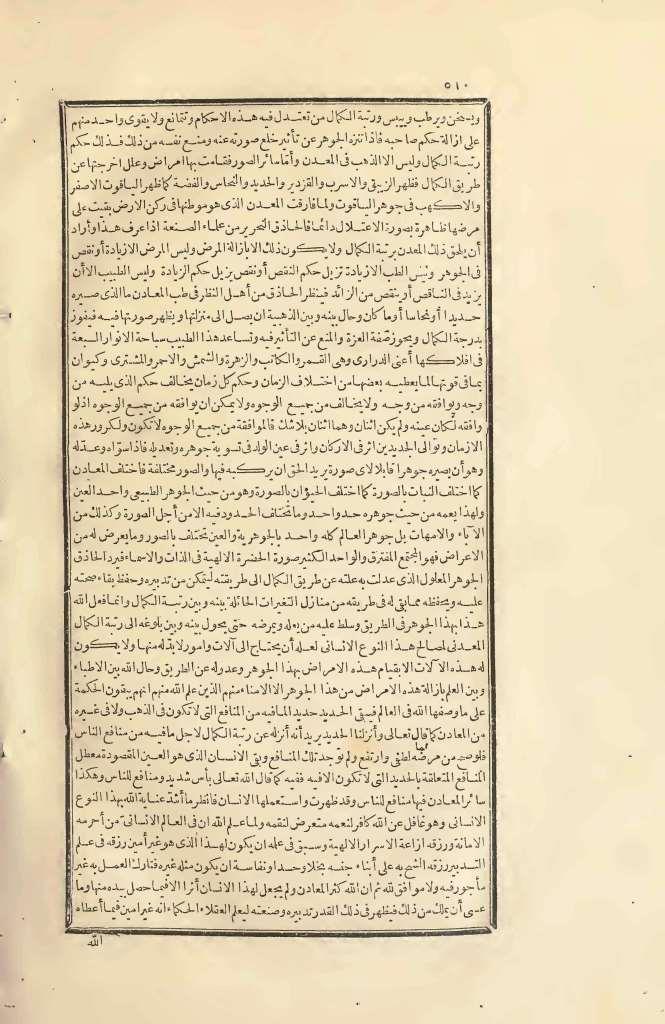 ٥١٠
ويسخن ويرطب وييبس ورتبة الكمال من تعتدل فيه هذه الاحكام وتتمانع ولا يقوى واحد منهم
على ازالة حكم صاحبه فاذا تنزه الجوهر عن تأثير خلع صورته عنه ومنع نفسه من ذلك فذلك حكم
رتبة الكمال وليس الا الذهب فى المعدن وأما سائر الصور فقامت بها امراض وعلل اخرجتها عن
طريق الكمال فظهر الزيبق والاسرب والقزدير والحديد والنحاس والفضة كما ظهر الياقوت الاصفر
والاكهب فى جوهر الياقوت ولما فارقت المعدن الذى هو موطنها فى ركن الارض بقيت على
مرضها ظاهرة بصورة الاعتلال دائما فالحاذق النحرير من علماء الصنعة اذا عرف هذا وأراد
أن يلحق ذلك المعدن برتبة الكمال ولا يكون ذلك الا بازالة المرض وليس المرض الا زيادة أو نقص
فى الجوهر وليس الطب الا زيادة تزيل حكم النقص أو نقص يزيل حكم الزيادة وليس الطبيب الا أن
يزيد فى الناقص أو ينقص من الزائد فينظر الحاذق من أهل النظر فى طب المعادن ما الذى صيره
حديدا أو نحاسا أو ما كان وحال بينه وبين الذهبية ان يصل الى منزلتها ويظهر صورتها فيه فيفوز
بدرجة الكمال ويحوز صفة العزة والمنع عن التأثير فيه وتساعد هذا الطبيب سباحة الانوار السبعة
فى افلاكها أعنى الدرارى وهى القمر والكاتب والزهرة والشمس والاحمر والمشترى وكيوان
بما فى قوتها لما يعطيه بعضها من اختلاف الزمان وحكم كل زمان يخالف حكم الذى يليه من
وجه ويوافقه من وجه ولا يخالف من جميع الوجوه ولا يمكن ان يوافقه من جميع الوجوه اذ لو
وافقه لكان عينه ولم يكن اثنان وهما اثنان بلا شك فالموافقة من جميع الوجوه لا تكون ولكرور هذه
الازمان وتوالى الجديدين اثر فى الاركان واثر فى عين الولد فى تسوية جوهره وتعديله فاذا سواه وعدله
وهو أن يصيره جوهرا قابلا لاى صورة يريد الحق ان يركبه فيها والصور مختلفة فاختلف المعادن
كما اختلف النبات بالصورة كما اختلف الحيوان بالصورة وهو من حيث الجوهر الطبيعى واحد العين
ولهذا يعمه من حيث جوهره حد واحد وما تختلف الحدود فيه الا من أجل الصورة وكذلك من
الآباء والامهات بل جوهر العالم كله واحد بالجوهرية والعين تختلف بالصور وما يعرض له من
الاعراض فهو المجتمع المفترق والواحد الكثير صورة الحضرة الالهية فى الذات والاسماء فيرد الحاذق
الجوهر المعلول الذى عدلت به علته عن طريق الكمال الى طريقته ليتمكن من تدبيره وحفظ بقاء صحته
عليه ويحفظه مما بقى له فى طريقه من منازل التغيرات الحائلة بينه وبين رتبة الكمال وانما فعل الله
هذا بهذا الجوهر فى الطريق وسلط عليه من يعله ويمرضه حتى يحول بينه وبين بلوغه الى رتبة الكمال
المعدنى لمصالح هذا النوع الانسانى لعلمه أن يحتاج الى آلات وامور لا بد له منها ولا يكون
له هذه الآلات الا بقيام هذه الامراض بهذا الجوهر وعدوله عن الطريق وحال الله بين الاطباء
وبين العلم بازالة هذه الامراض من هذا الجوهر الا الامناء منهم الذين علم الله منهم انهم يبقون الحكمة
على ما وضعها الله فى العالم فيبقى الحديد حديدا لما فيه من المنافع التى لا تكون فى الذهب ولا فى غيره
من المعادن كما قال تعالى وأنزلنا الحديد يريد أنه أنزله عن رتبة الكمال لاجل ما فيه من منافع الناس
فلو صح من مرضه لطغى وارتفع ولم توجد تلك المنافع وبقى الانسان الذى هو العين المقصودة معطل
المنافع المتعلقة بالحديد التى لا تكون الا فيه ففيه كما قال الله تعالى بأس شديد ومنافع للناس وهكذا
سائر المعادن فيها منافع للناس وقد ظهرت واستعملها الانسان فانظر ما أشد عناية الله بهذا النوع
الانسانى وهو غافل عن الله كافر لنعمه متعرض لنقمه ولما علم الله ان فى العالم الانسانى من أحرمه
الامانة ورزقه اذاعة الاسرار الالهية وسبق فى علمه ان يكون لهذا الذى هو غير أمين رزقه فى علم
التدبير رزقه الشح به على أبناء جنسه بخلا وحسدا ونفاسة ان يكون مثله غيره فتارك العمل به غير
مأجور فيه ولا موافق لله ثم ان الله كثر المعادن ولم يجعل لهذا الانسان أثرا الا فيما حصل بيده منها وما
عسى أن يملك من ذلك فيظهر فى ذلك القدر تدبيره وصنعته ليعلم العقلاء الحكماء انه غير امين فيما أعطاه
الله